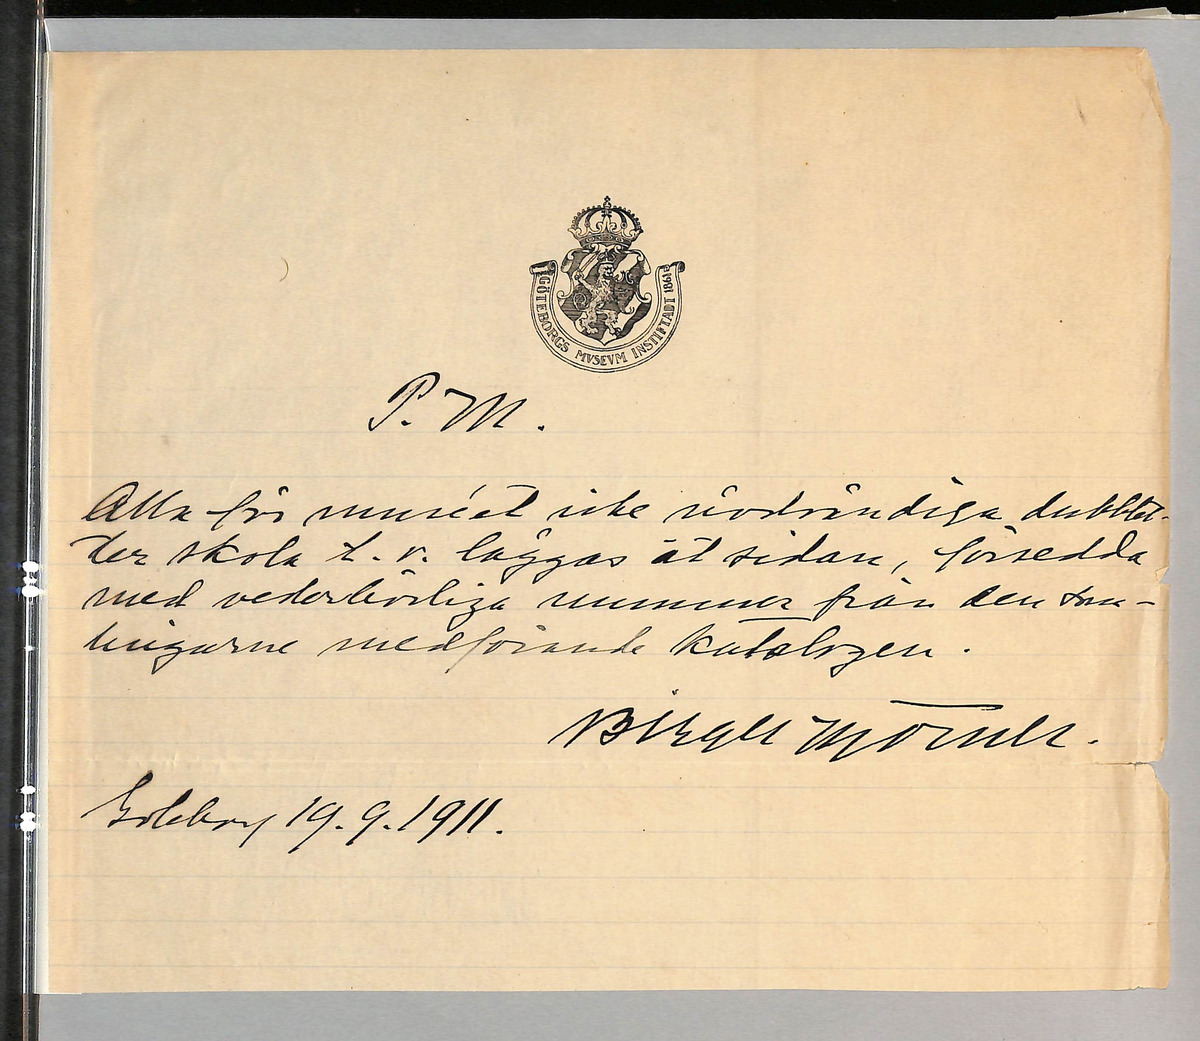 GÖTEBORGS MVSEVM INSTIFTADT 1861
P. M.
Alla för muséet icke nödvändiga dubblet-
ter skola t. v. läggas åt sidan, försedda
med vederbörliga nummer från den sam-
lingarne medföljande katalogen.
Birger Mörner.
Göteborg 19.9.1911.